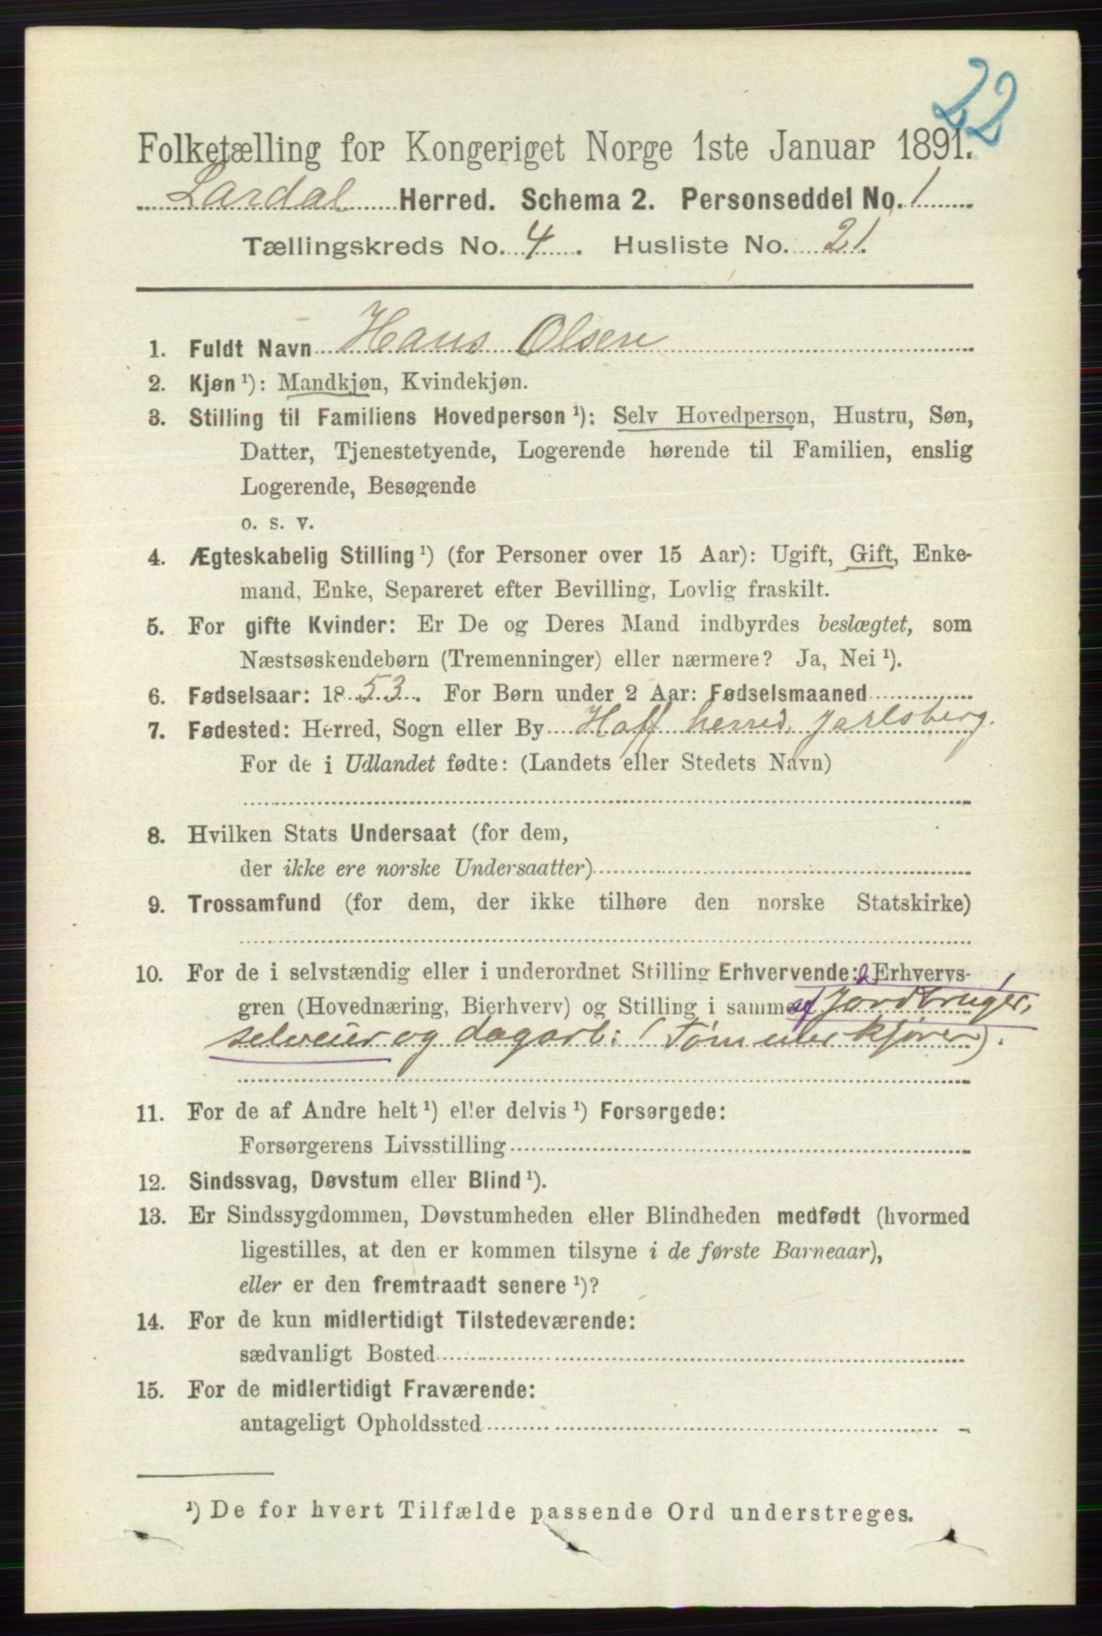 22
Folketælling for Kongeriget Norge 1ste Januar 1891.
Lardal Herred. Schema 2. Personseddel No. 1
Tællingskreds No. 4. Husliste No. 21.
1. Fuldt Navn Hans Olsen
2. Kjøn ¹): Mandkjøn, Kvindekjøn.
3. Stilling til Familiens Hovedperson ¹): Selv Hovedperson, Hustru, Søn,
Datter, Tjenestetyende, Logerende hørende til Familien, enslig
Logerende, Besøgende
o. s. v.
4. Ægteskabelig Stilling ¹) (for Personer over 15 Aar): Ugift, Gift, Enke-
mand, Enke, Separeret efter Bevilling, Lovlig fraskilt.
5. For gifte Kvinder: Er De og Deres Mand indbyrdes beslægtet, som
Næstsøskendebørn (Tremenninger) eller nærmere? Ja, Nei ¹).
6. Fødselsaar: 1853. For Børn under 2 Aar: Fødselsmaaned
7. Fødested: Herred, Sogn eller By Hoff herred, Jarlsberg.
For de i Udlandet fødte: (Landets eller Stedets Navn)
8. Hvilken Stats Undersaat (for dem,
der ikke ere norske Undersaatter)
9. Trossamfund (for dem, der ikke tilhøre den norske Statskirke)
10. For de i selvstændig eller i underordnet Stilling Erhvervende: Erhvervs-
gren (Hovednæring, Bierhverv) og Stilling i samme Jordbruger,
selveier og dagarb: (Tømmerkjører).
11. For de af Andre helt ¹) eller delvis ¹) Forsørgede:
Forsørgerens Livsstilling
12. Sindssvag, Døvstum eller Blind ¹).
13. Er Sindssygdommen, Døvstumheden eller Blindheden medfødt (hvormed
ligestilles, at den er kommen tilsyne i de første Barneaar),
eller er den fremtraadt senere ¹)?
14. For de kun midlertidigt Tilstedeværende:
sædvanligt Bosted
15. For de midlertidigt Fraværende:
antageligt Opholdssted
¹) De for hvert Tilfælde passende Ord understreges.